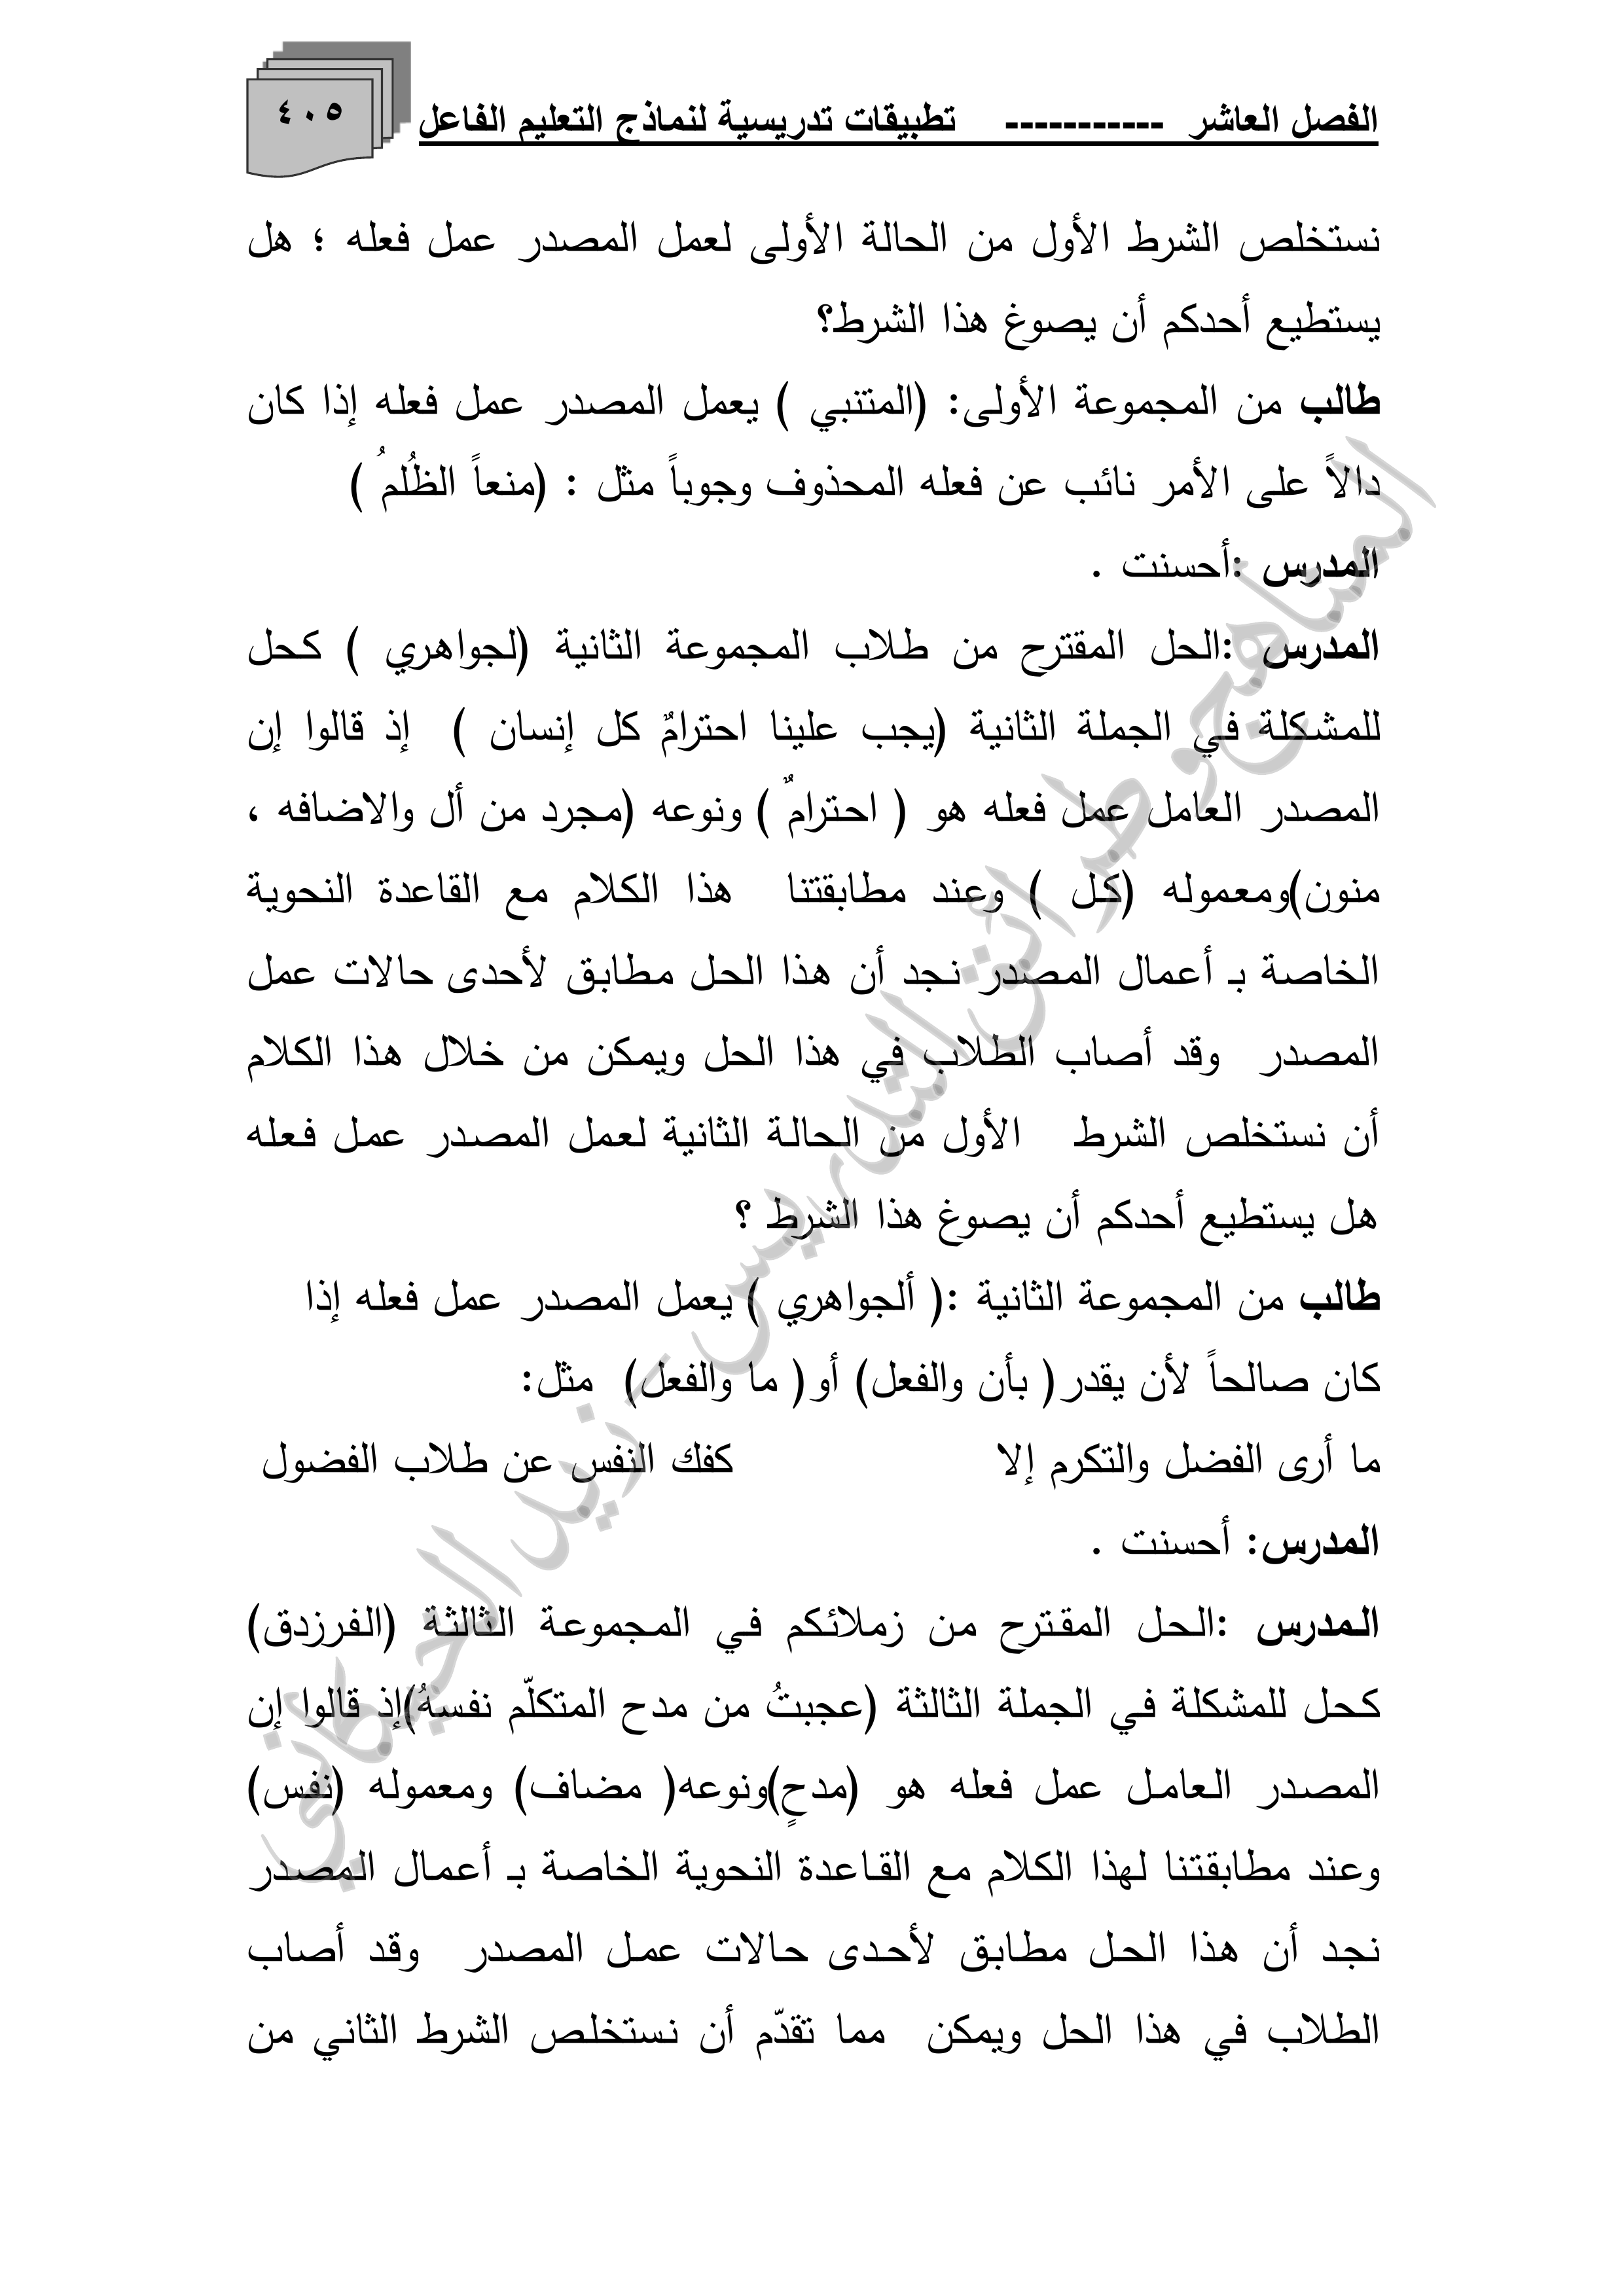 الفصل العاشر ----------- تطبيقات تدريسية لنماذج التعليم الفاعل
٤٠٥
نستخلص الشرط الأول من الحالة الأولى لعمل المصدر عمل فعله ؛ هل
يستطيع أحدكم أن يصوغ هذا الشرط؟
طالب من المجموعة الأولى: (المتنبي ) يعمل المصدر عمل فعله إذا كان
دالاً على الأمر نائب عن فعله المحذوف وجوباً مثل : (منعاً الظُلمُ )
المدرس :أحسنت .
المدرس :الحل المقترح من طلاب المجموعة الثانية (لجواهري ) كحل
للمشكلة في الجملة الثانية (يجب علينا احترامٌ كل إنسان ) إذ قالوا إن
المصدر العامل عمل فعله هو ( احترامٌ ) ونوعه (مجرد من أل والاضافه ،
منون)ومعموله (كل ) وعند مطابقتنا هذا الكلام مع القاعدة النحوية
الخاصة بـ أعمال المصدر نجد أن هذا الحل مطابق لأحدى حالات عمل
المصدر وقد أصاب الطلاب في هذا الحل ويمكن من خلال هذا الكلام
أن نستخلص الشرط الأول من الحالة الثانية لعمل المصدر عمل فعله
هل يستطيع أحدكم أن يصوغ هذا الشرط ؟
طالب من المجموعة الثانية :( ألجواهري ) يعمل المصدر عمل فعله إذا
كان صالحاً لأن يقدر( بأن والفعل) أو( ما والفعل) مثل:
ما أرى الفضل والتكرم إلا كفك النفس عن طلاب الفضول
المدرس: أحسنت .
المدرس :الحل المقترح من زملائكم في المجموعة الثالثة (الفرزدق)
كحل للمشكلة في الجملة الثالثة (عجبتُ من مدح المتكلّم نفسهُ)إذ قالوا إن
المصدر العامل عمل فعله هو (مدحٍ)ونوعه( مضاف) ومعموله (نفس)
وعند مطابقتنا لهذا الكلام مع القاعدة النحوية الخاصة بـ أعمال المصدر
نجد أن هذا الحل مطابق لأحدى حالات عمل المصدر وقد أصاب
الطلاب في هذا الحل ويمكن مما تقدّم أن نستخلص الشرط الثاني من
المناهج وطرائق التدريس - زيد الخيكاني